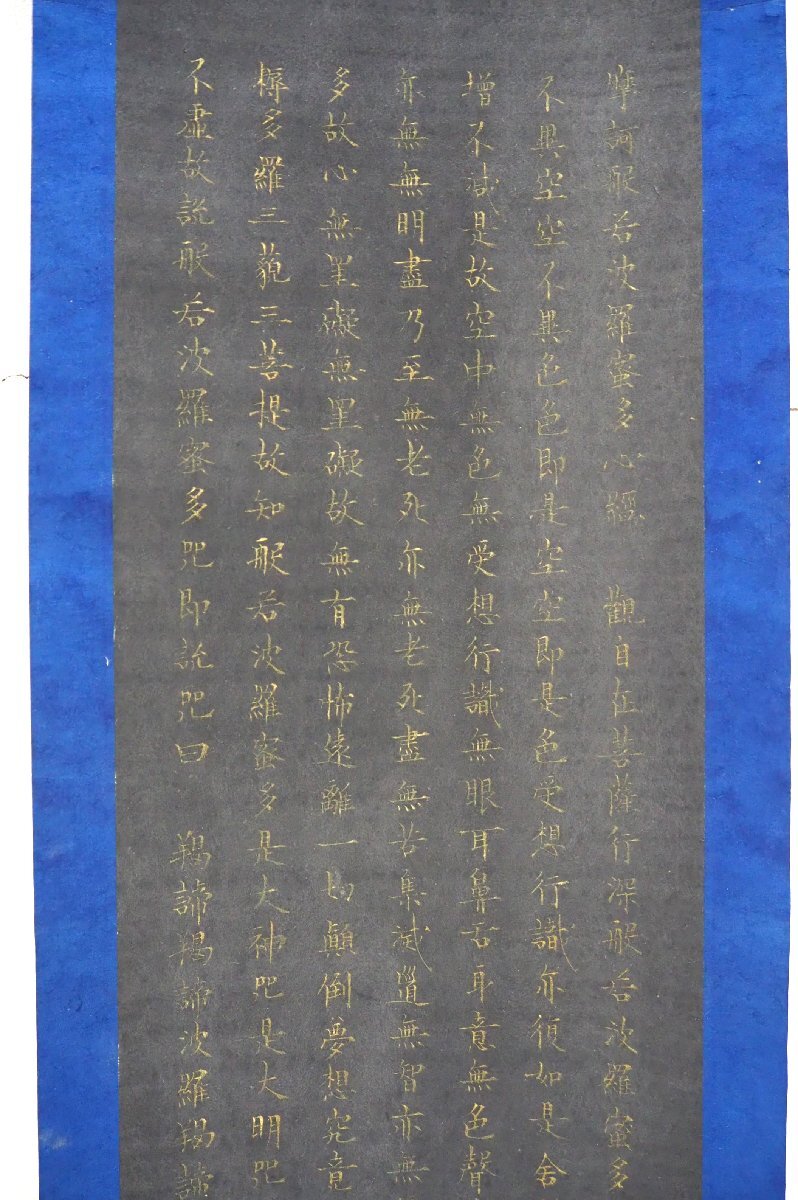 摩訶般若波羅蜜多心經 觀自在菩薩行深般若波羅蜜多
不異空空不異色色即是空空即是色受想行識亦復如是舍
增不減是故空中無色無受想行識無眼耳鼻舌身意無色聲
亦無無明盡乃至無老死亦無老死盡無苦集滅道無智亦無
多故心無罣礙無罣礙故無有恐怖遠離一切顛倒夢想究竟
耨多羅三藐三菩提故知般若波羅蜜多是大神咒是大明咒
不虛故說般若波羅蜜多咒即說咒曰 羯諦羯諦波羅羯諦